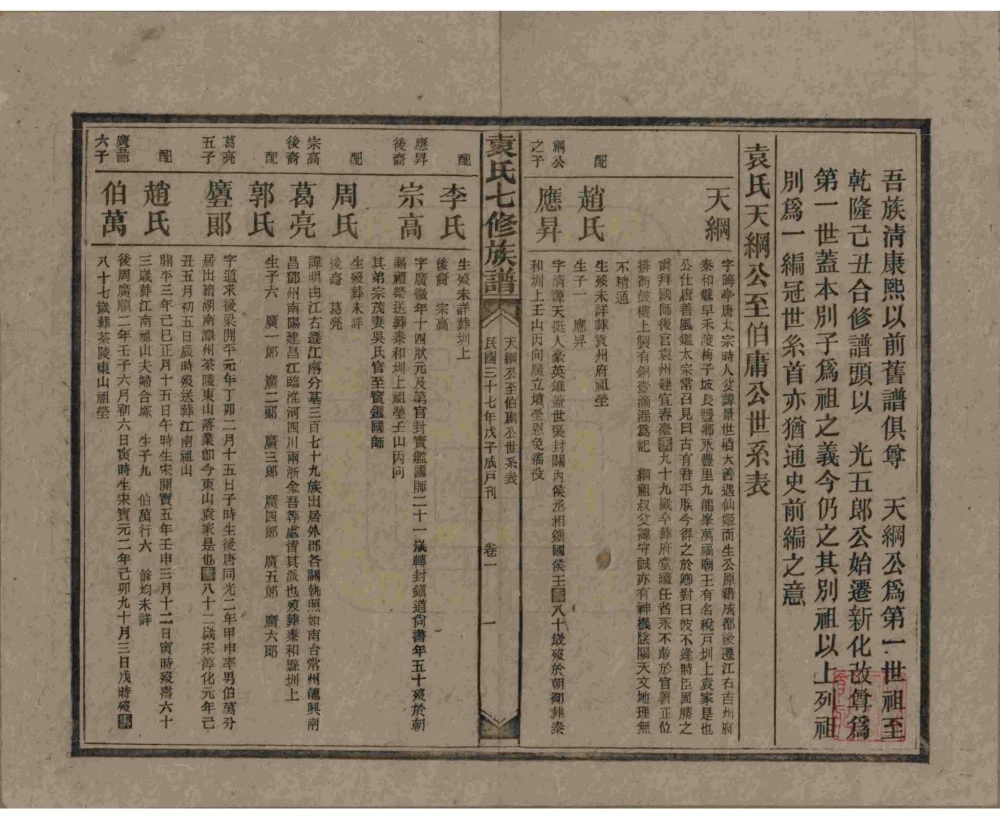 吾族淸康熙以前舊譜俱尊　天綱公爲第一世祖至
乾隆己丑合修譜頭以　光五郎公始遷新化改尊爲
第一世蓋本別子爲祖之義今仍之其別祖以上列祖
別爲一編冠世系首亦猶通史前編之意
袁氏天綱公至伯庸公世系表
天綱
字晦亭唐太宗時人父諱景世積大善遇仙姬而生公原籍成都後遷江右吉州府
泰和縣早禾渡梅子坡良豐鄉永豐里九龍峯萬福廟王有名稅戶圳上袁家是也
公仕唐善風鑑太宗常召見曰古有君平朕今得之於卿對曰彼不逢時臣固勝之
不精通
配
趙氏
生歿未詳葬袁州府祖塋
生子　應昇
綱公
之子
應昇
字淸源天挺人豪英雄蓋世
和圳上壬山丙向廣立墳塋恩免徭役
袁氏七修族譜
天綱公至伯庸公世系表
民國三十七年戊子成戶刊
卷一
一
配
李氏
生歿未詳葬圳上
後裔　宗高
應昇
後裔
宗高
字廣徽年十四狀元及第官封寶鑑國師二十一歲轉封鎭道尙書年五十歿於朝
賜禮祭送葬泰和圳上祖塋壬山丙向
其弟宗茂妻吳氏官至寶鑑國師
配
周氏
生歿葬未詳
後裔　葛亮
宗高
後裔
葛亮
諱明由江右遷江南分基三百七十九族出居外郡各關執照如南台常州龍興南
昌鄧州南陽建昌江臨淮河四川兩浙金吾等處皆其派也歿葬泰和縣圳上
配
郭氏
生子六　廣一郎　廣二郎　廣三郎　廣四郎　廣五郎　廣六郎
葛亮
五子
字道求後梁開平元年丁卯二月十五日子時生後唐同光二年甲申奉男伯萬分
居出籍湖南潭州茶陵東山落業卽今東山袁家是也壽八十二歲宋淳化元年己
丑五月初五日辰時歿送葬江南祖山
配
趙氏
開平三年己巳正月十五日午時生宋開寶五年壬申三月十二日寅時歿壽六十
三歲葬江南祖山夫婦合塚　生子九　伯萬行六　餘均未詳
六子
伯萬
後周廣順二年壬子六月初六日寅時生宋寶元二年己卯九十月三日戌時歿壽
八十七歲葬茶陵東山祖塋